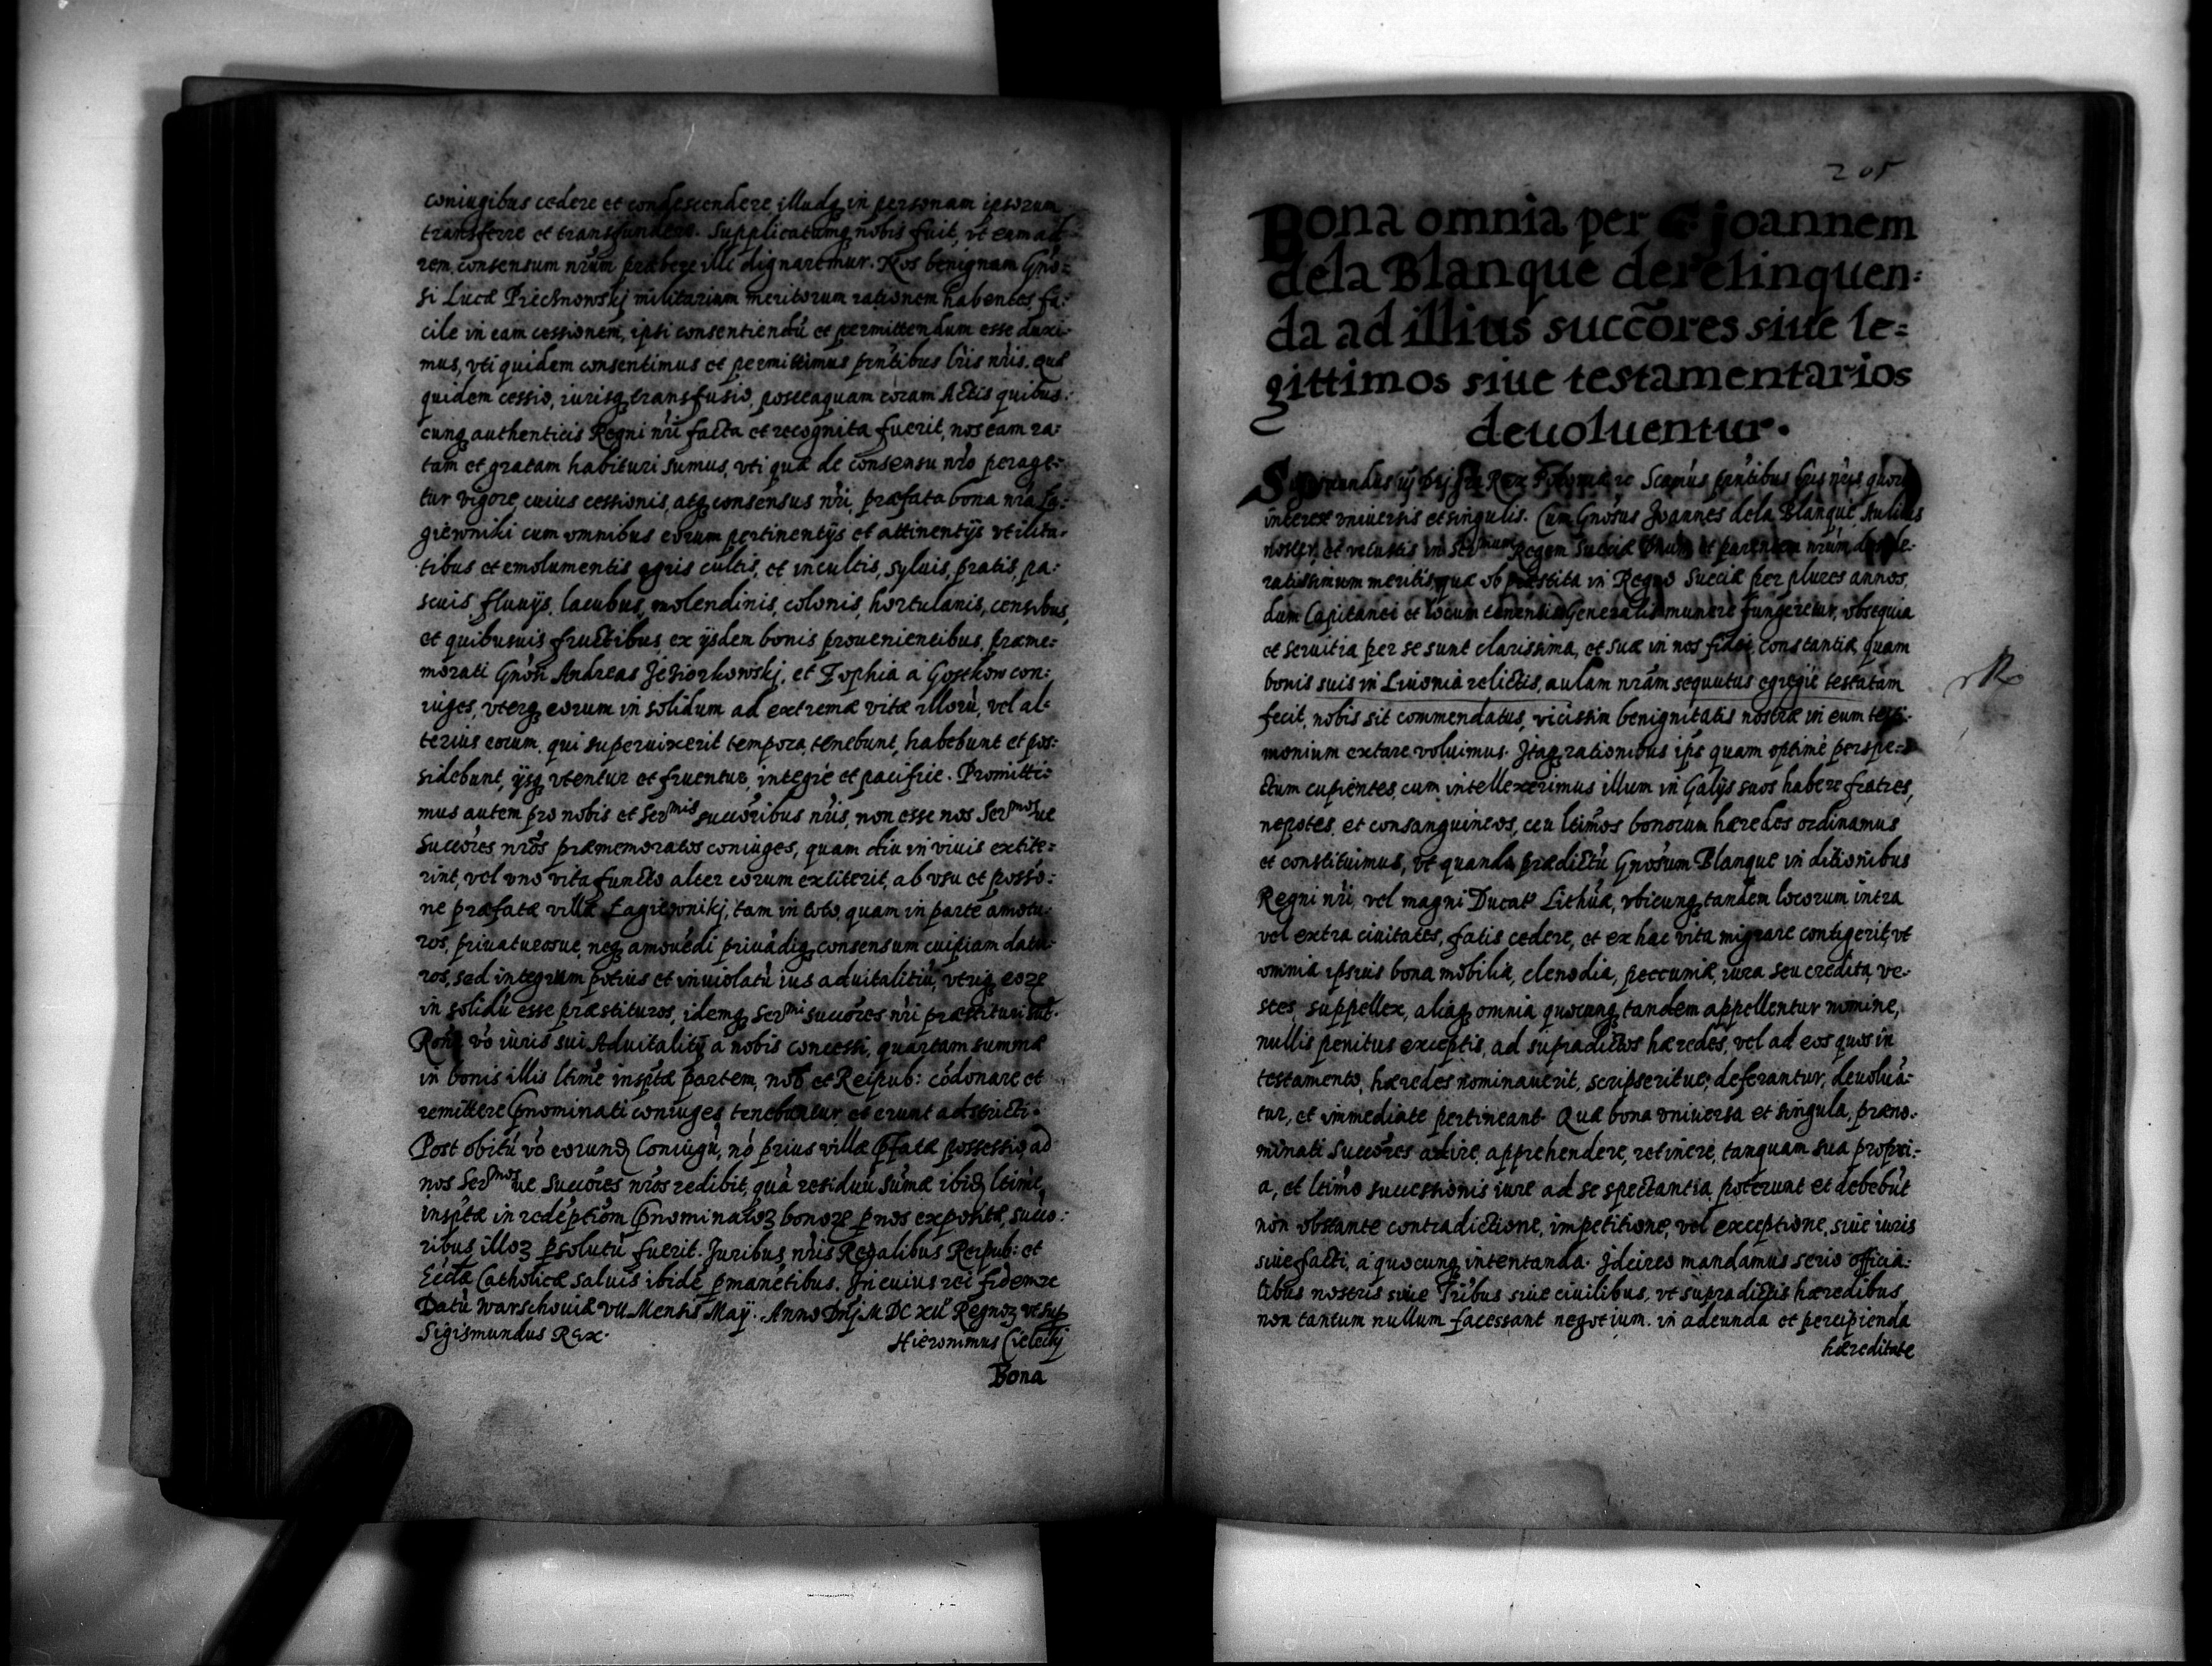 coniugibus cedere et condescendere, illudq in personam ipsorum
transferre et transfundere. Supplicatumq nobis fuit, vt eam ad
rem, consensum nrum præbere illi dignaremur. Nos benignam Gno-
si Lucæ Piechnowskj militarium meritorum rationem habentes, fa-
cile in eam cessionem, ipsi consentiendū et permittendum esse duxi-
mus, vti quidem consentimus et permittimus pntibus lris nris. Quæ
quidem cessio, iurisq transfusio, posteaquam coram Actis quibus-
cunq authenticis Regni nri facta et recognita fuerit, nos eam ra-
tam et gratam habituri sumus, vti quæ de consensu nro perage-
tur vigore, cuius cessionis, atq consensus nri, præfata bona nra Ła-
giewniki cum omnibus eorum pertinentijs et attinentijs vtilita-
tibus et emolumentis agris cultis, et incultis, syluis, pratis, pa-
scuis, fluuijs, lacubus, molendinis, colonis, hortulanis, censibus,
et quibusuis fructibus, ex ijsdem bonis prouenientibus, præme-
morati Gnosi Andreas Jeziorkowskj, et Zophia a Gostkow con-
iuges, vterq eorum in solidum ad extremæ vitæ illorū, vel al-
terius eorum, qui superuixerit tempora, tenebunt, habebunt et pos-
sidebunt, ijsq vtentur et fruentur, integrè et pacificè. Promitti-
mus autem pro nobis et Ser^mis succoribus nris, non esse nos Ser^mosue
Succores nros præmemoratos coniuges, quam diu in viuis extite-
rint, vel vno vita functo alter eorum extiterit, ab vsu et posso-
ne præfatæ villæ Łagiewnikj, tam in toto, quam in parte amotu-
ros, priuaturosue, neq amouēdi priuādiq consensum cuipiam datu-
ros, sed integrum potius et inuiolatū ius aduitalitiū, vtriq eorƺ
in solidū esse præstituros, idemq Ser^mi succores nri præstituri sūt.
Rone vo iuris sui Aduitalitij a nobis concessi, quartam summæ
in bonis illis ltime insptæ partem, nob et Reipub: cōdonare et
remittere pnominati coniuges tenebuntur, et erunt adstricti.
Post obitū vo eorund Coniugū, nō prius villæ pfatæ possessio, ad
nos Ser^mosue Succores nros redibit, quā residuū sūmæ ibid ltime,
insptæ in redēptiōm pnominatoƺ bonorƺ p nos expositæ, succo-
ribus illoƺ psolutū fuerit. Juribus nris Regalibus Reipub: et
Ecctæ Catholicæ saluis ibidē pmanētibus. In cuius rei fidem ec
Datū Warschouiæ VII Mensis Maij. Anno Dnj M DC XII Regnoƺ vt sup
Sigismundus Rex.
Hieronimus Cieleckj
Bona
205
Bona omnia per G. Joannem
dela Blanque derelinquen-
da ad illius succōres siue le-
gittimos siue testamentarios
deuoluentur.
Sigismundus iij Dej Gra Rex Poloniæ ec Scamus pntibus lris nris quor
interest vniuersis et singulis. Cum Gnosus Joannes dela Blanque, Aulicus
noster, et vetustis in Ser^mum Regem Sueciæ Dnum et parentem nrum deside-
ratissimum meritis, quæ ob præstita in Regno Sueciæ per plures annos,
dum Capitanei et locum tenentis Generalis munere fungeretur, obsequia
et seruitia per se sunt clarissima, et suæ in nos fidei, constantiæ, quam
bonis suis in Liuonia relictis, aulam nram sequutus egregiè testatam
fecit, nobis sit commendatus, vicissim benignitatis nostræ in eum testi-
monium extare voluimus. Itaq rationibus ips quam optimè perspe-
ctum cupientes, cum intellexerimus illum in Galijs suos habere fratres,
nepotes, et consanguineos, ceu ltimos bonorum hæredes ordinamus
et constituimus, vt quando prædictū Gnosum Blanque in ditionibus
Regni nri, vel magni Ducat Lithuæ, vbicunq tandem locorum intra
vel extra ciuitates, fatis cedere, et ex hac vita migrare contigerit, vt
omnia ipsius bona mobilia, clenodia, peccuniæ, iura seu credita, ve-
stes, suppellex, aliaq omnia quocunq tandem appellentur nomine,
nullis penitus exceptis, ad supradictos hæredes, vel ad eos quos in
testamento, hæredes nominauerit, scripseritue, deferantur, deuoluā-
tur, et immediate pertineant. Quæ bona vniuersa et singula, præno-
minati Succores adire, apprehendere, retinere, tanquam sua propri-
a, et ltimo successionis iure ad se spectantia, poterunt et debebūt
non obstante contradictione, impetitione, vel exceptione, siue iuris
siue facti, a quocunq intentanda. Idcirco mandamus serio officia-
libus nostris siue Tribus siue ciuilibus, vt supradictis hæredibus
non tantum nullum facessant negotium in adeunda et percipienda
hæreditate